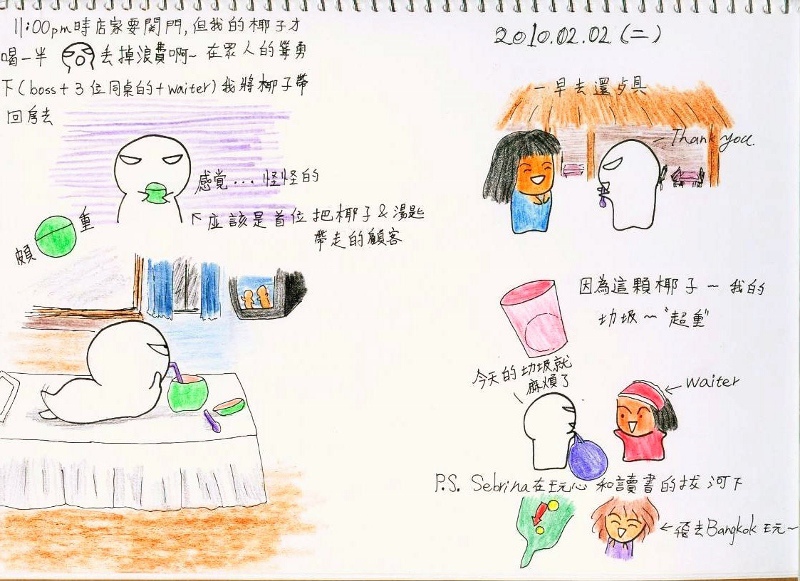 11:00pm時店家要關門,但我的椰子才
喝一半
去掉浪費啊~ 在眾人的聳勇
下(boss+3位同桌的+waiter)我將椰子帶
回房去
感覺...怪怪的
座該是首位把椰子&湯匙
帶走的顧客
頗重
2010.02.02(二)
一早去還
具
Thank you.
因為這顆椰子~我的
垃圾~"超重"
今天的垃圾就
麻煩了
Waiter
P.S. Sebrina在玩心和讀書的拔河下
飛去Bangkok玩~